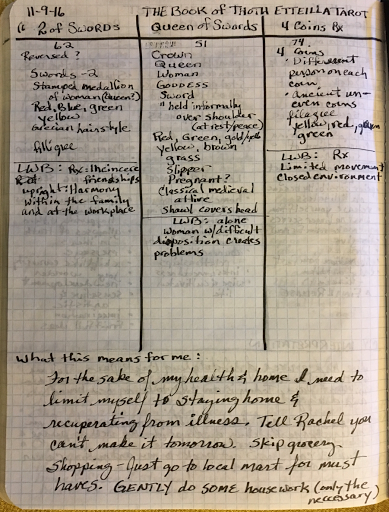 11-9-16 THE BOOK OF THOTH ETTEILLA TAROT
2 of SWORDS
62
Reversed?
Swords - 2
Stamped medallion
of woman (Queen?)
Red, Blue, green
yellow
Grecian hairstyle
filigree
LWB: Rx: Insincere
friendships
upright: Harmony
within the family
and at the workplace
Queen of Swords
51
Crown
Queen
Woman
GODDESS
Sword
" held informally
over shoulder
(at rest/peace)
Red, Green, gold/yello
yellow, brown
grass
Slipper
Pregnant?
Classical medieval
attire
Shawl covers head
LWB: alone
Woman w/difficult
disposition creates
problems
4 Coins Rx
74
4 Coins
· Different
person on each
coin
· Ancient un-
even coins
filigree
yellow, red,
green
LWB: Rx
Limited movement
Closed environment
What this means for me:
For the sake of my health & home I need to
limit myself to staying home &
recuperating from illness. Tell Rachel you
can't make it tomorrow. Skip grocery
shopping - just go to local mart for must
haves. GENTLY do some housework (only the
neccessary)